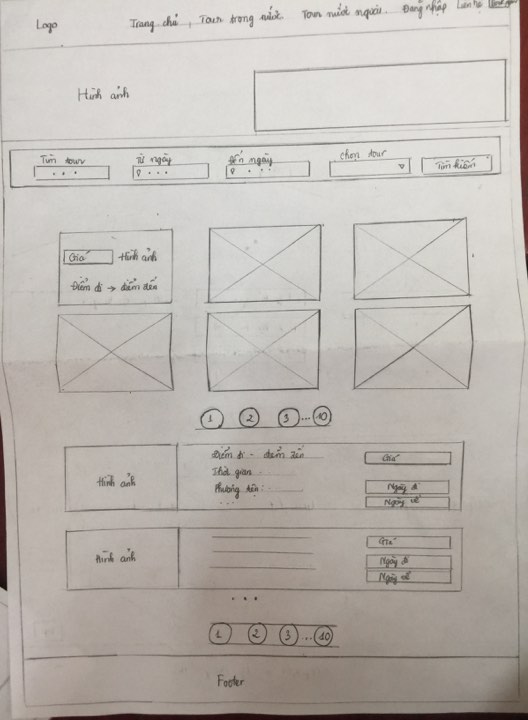 Logo
Trang chủ, Tour trong nước Tour nước ngoài. Đăng nhập Liên hệ
Hình ảnh
Tìm tour Từ ngày Đến ngày chọn tour
... ... ... Tìm kiếm
Giá Hình ảnh
Điểm đi → điểm đến
1 2 3 ... 10
Hình ảnh
Điểm đi - điểm đến
Thời gian
Phương tiện:
...
Giá
Ngày đi
Ngày về
Hình ảnh
Giá
Ngày đi
Ngày về
...
1 2 3 ... 10
Footer